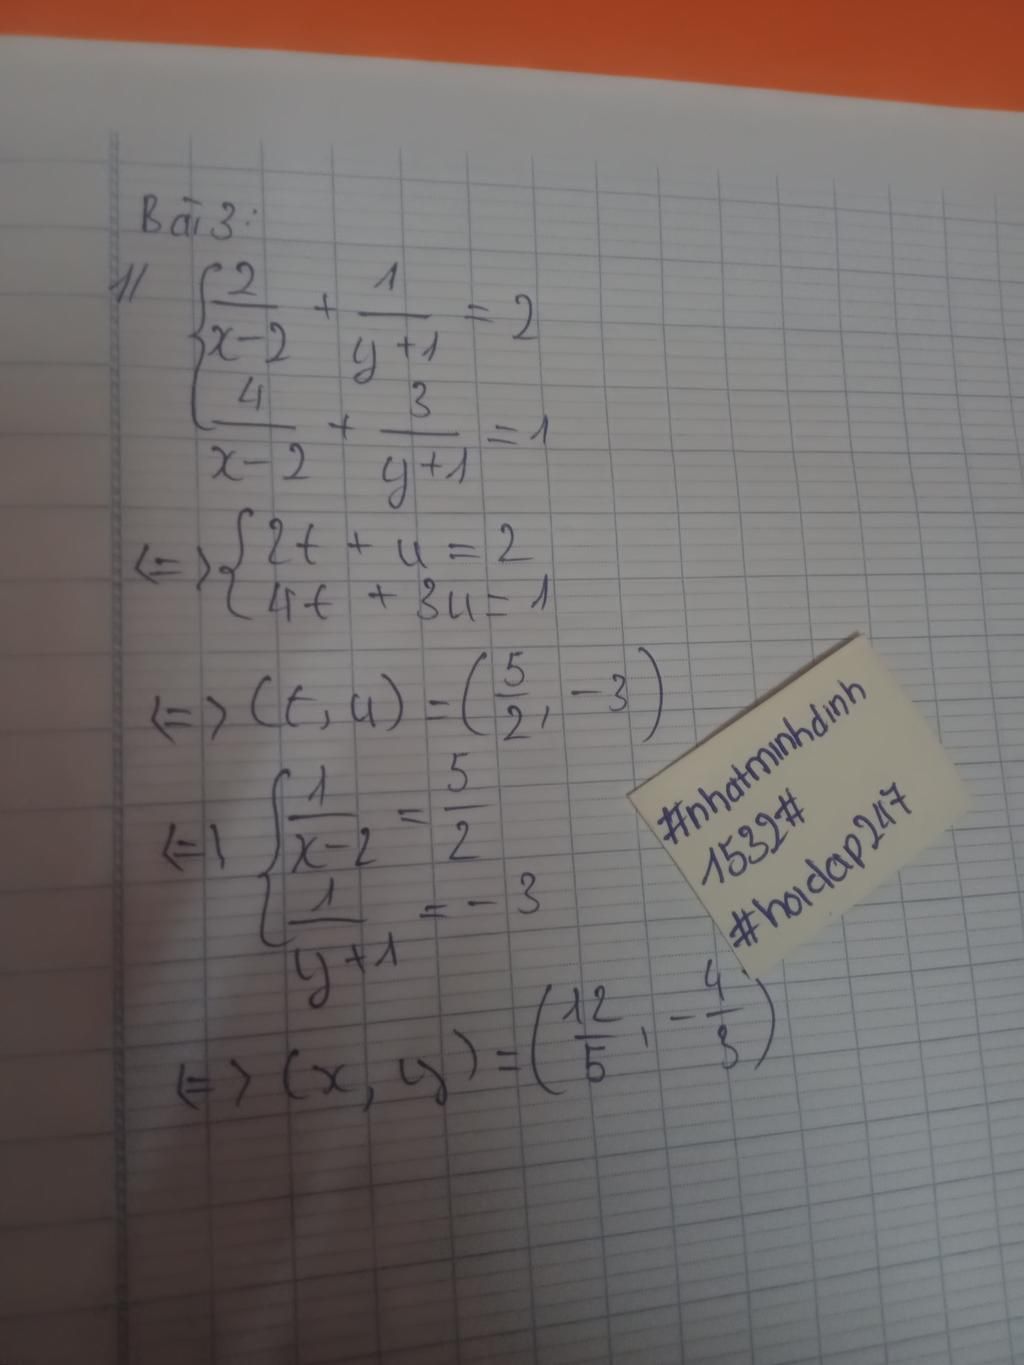 Bài 3:
1// { 2/(x-2) + 1/(y+1) = 2
4/(x-2) + 3/(y+1) = 1
<=> { 2t + u = 2
4t + 3u = 1
<=> (t, u) = (5/2, -3)
<=> { 1/(x-2) = 5/2
1/(y+1) = -3
<=> (x, y) = (12/5, -4/3)
#nhatminhdinh
1532#
#hoidap247